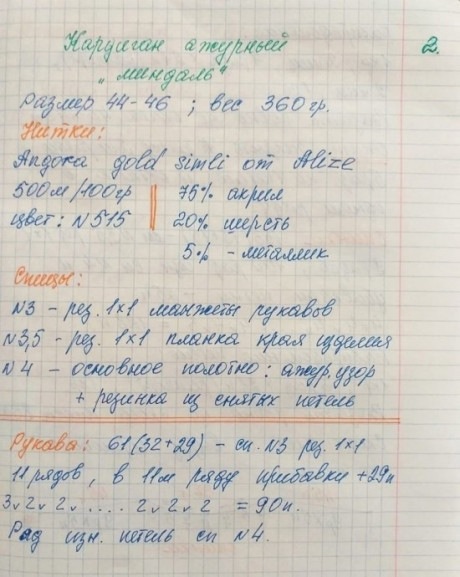 Кардиган ажурный 2.
„миндаль"
Размер 44-46 ; вес 360гр.
Нитки:
Ангора gold simli от Alize
500м/100гр 75% акрил
цвет: N515 20% шерсть
5% - металлик
Спицы:
N3 - рез. 1×1 манжеты рукавов
N3,5 - рез. 1×1 планка края изделия
N4 - основное полотно: ажур. узор
+ резинка из снятых петель
Рукава: 61(32+29) - сп. N3 рез. 1×1
11 рядов, в 11м ряду прибавки +29п
3v2v2v.... 2v2v2 = 90п.
Ряд изн. петель сп N4.